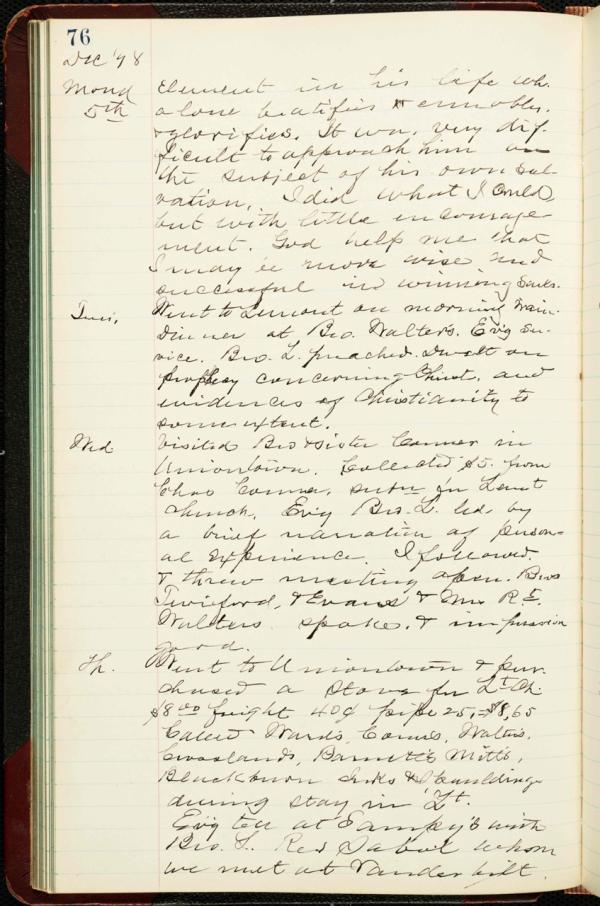 76
Dec '98
Mond 5th element in his life wh.
alone beatifies & ennobles.
& glorifies. It was very dif-
ficult to approach him on
the subject of his own sal-
vation. I did what I could,
but with little encourage-
ment. God help me that
I may be more wise and
successful in winning souls.
Tues. Went to Lemont on morning train.
Dinner at Bro. Walter's. Ev'g ser-
vice. Bro. L. preached. Dwelt on
prophecy concerning Christ, and
evidences of Christianity to
some extent.
Wed Visited Bro & sister Conner in
Uniontown. Collected $5. from
Chas Conner, on Lemt
church. Ev'g Bro. L. led by
a brief narration of person-
al experience. I followed.
& threw meeting open. Bros
Twieford, & Evans & Mrs R. E.
Walters spoke. & impression
good.
Th. Went to Uniontown & pur-
chased a stove for Lt Ch.
$8.00 freight 40¢ pipe 25, = $8,65
Called Wards, Connes, Walters,
Crosslands, Barnetts Mitts,
Blackburn & Spauldings
during stay in Lt.
Ev'g tea at Sampey's with
Bro. L. Rev Sabol whom
we met at Vanderbilt.